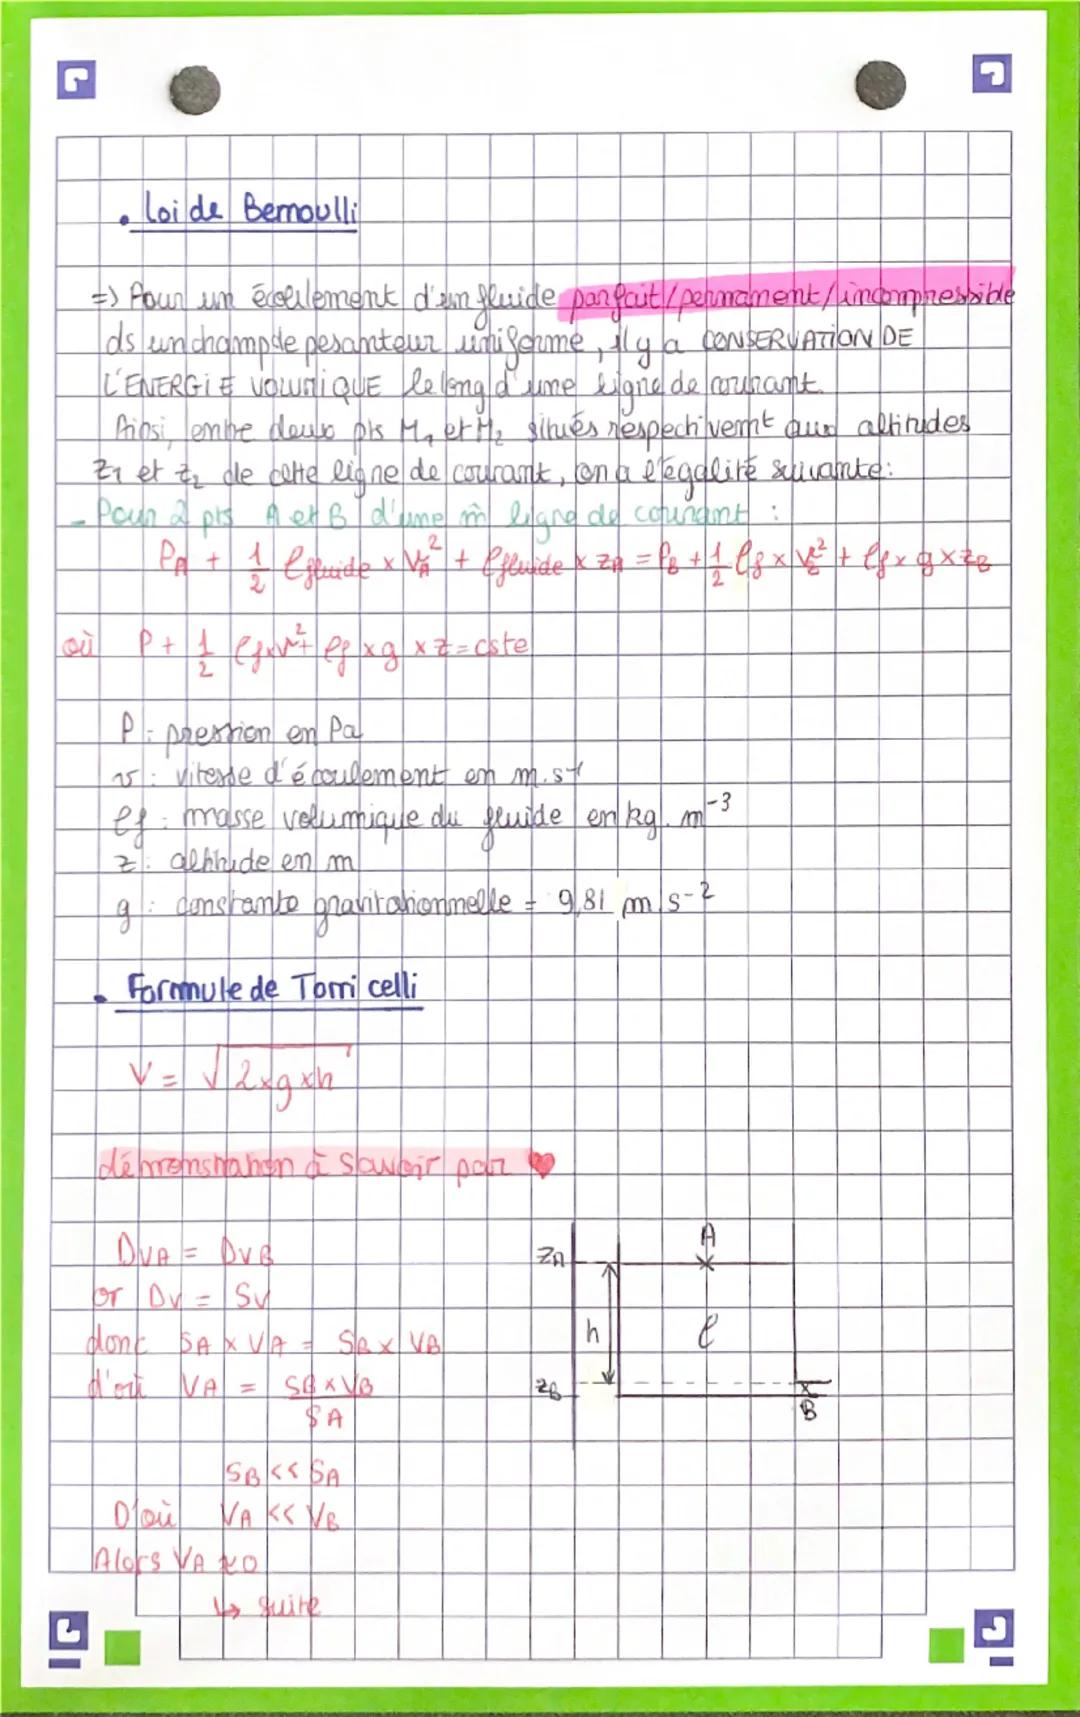 • Loi de Bernoulli
=> Pour un écoulement d'un fluide parfait/permanent/incompressible
ds un champ de pesanteur uniforme, il y a CONSERVATION DE
L'ENERGIE VOLUMIQUE le long d'une ligne de courant.
Ainsi, entre deux pts M1 et M2 situés respectivemt aux altitudes
z1 et z2 de cette ligne de courant, on a l'égalité suivante:
- Pour 2 pts A et B d'une m̂ ligne de courant :
PA + 1/2 ρfluide × VA² + ρfluide × zA = PB + 1/2 ρf × VB² + ρf × g × zB
où P + 1/2 ρf×v² + ρf × g × z = cste
P : pression en Pa
v : vitesse d'écoulement en m.s-1
ρf : masse volumique du fluide en kg.m-3
z : altitude en m
g : constante gravitationnelle = 9,81 m.s-2
• Formule de Torricelli
V = √2×g×h
démonstration à savoir par ♥
DVA = DVB
or DV = SV
donc SA × VA = SB × VB
d'où VA = SB × VB / SA
SB << SA
D'où VA << VB
Alors VA ≈ 0
↳ suite
A
zA
h
ρ
zB
B